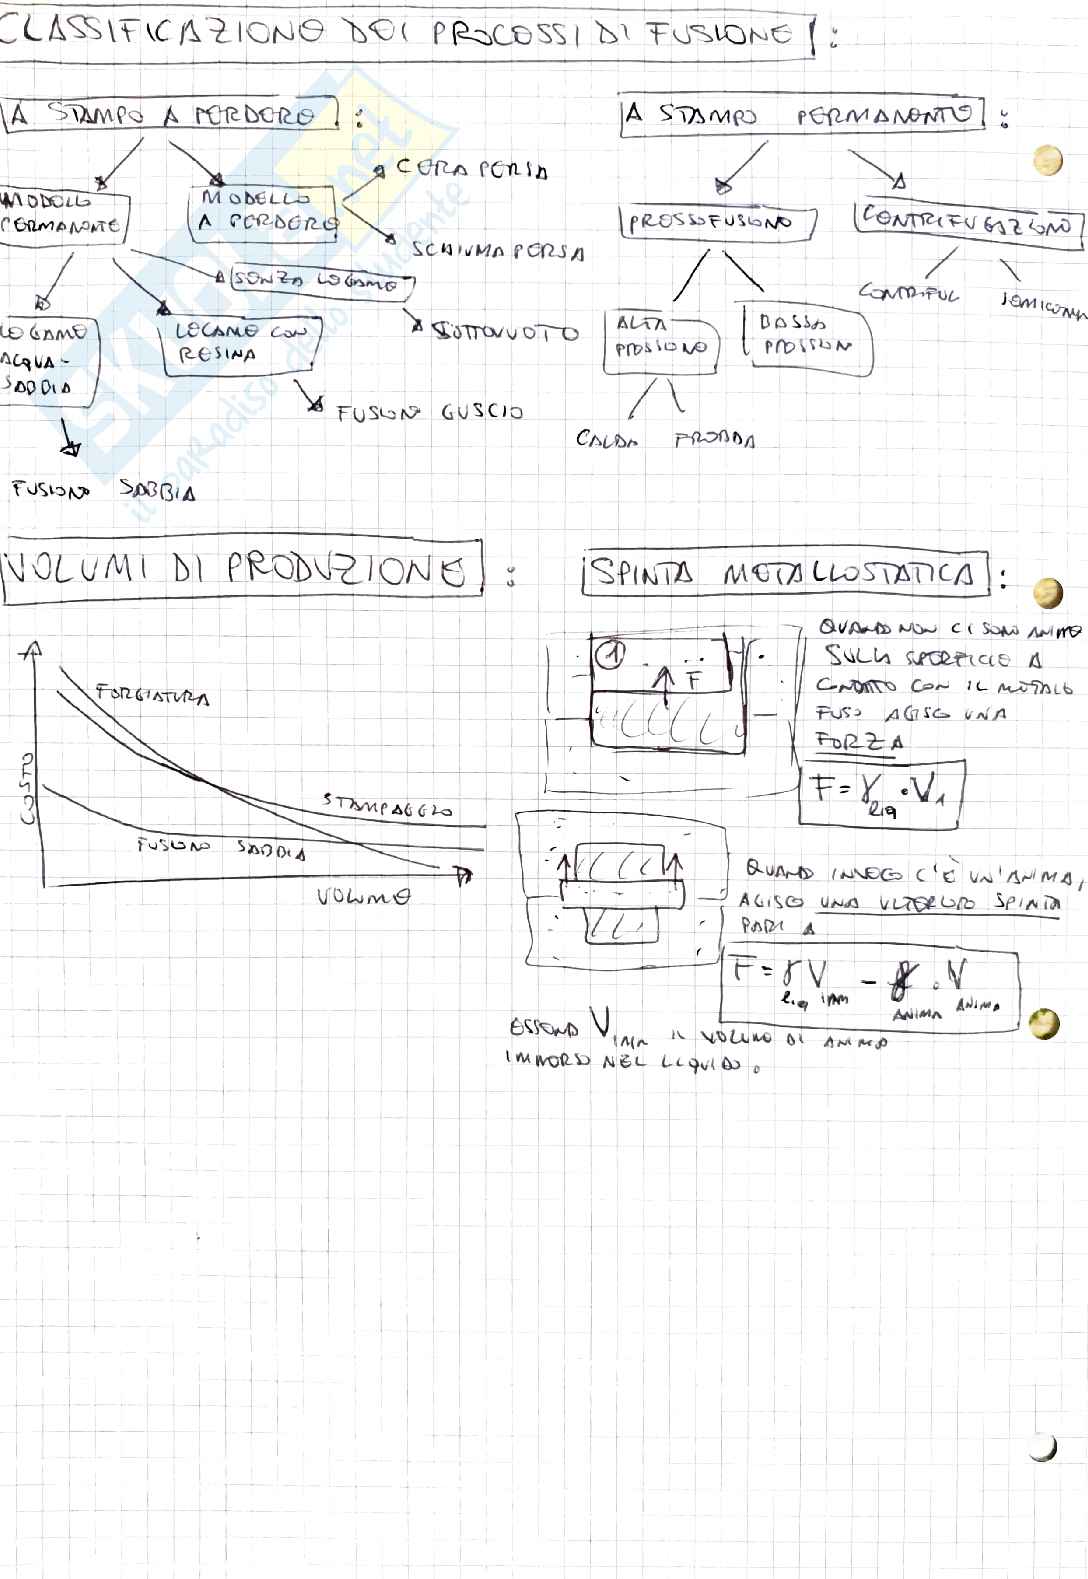 CLASSIFICAZIONE DEI PROCESSI DI FUSIONE :
A STAMPO A PERDERE :
A STAMPO PERMANENTE :
MODELLO
PERMANENTE
MODELLO
A PERDERE
CERA PERSA
SCHIUMA PERSA
SENZA LEGAME
SOTTOVUOTO
LEGAME
ACQUA-
SABBIA
LEGAME CON
RESINA
FUSIONE GUSCIO
FUSIONE SABBIA
PRESSOFUSIONE
CENTRIFUGAZIONE
ALTA
PRESSIONE
BASSA
PRESSION
CENTRIFUG
SEMICENTR
CALDA FREDDA
VOLUMI DI PRODUZIONE :
COSTO
FORGIATURA
STAMPAGGIO
FUSIONE SABBIA
VOLUME
SPINTA METALLOSTATICA :
1
F
QUANDO NON CI SONO ANIME
SULLA SUPERFICIE A
CONTATTO CON IL METALLO
FUSO AGISCE UNA
FORZA
F = γ liq · V1
QUANDO INVECE C'È UN'ANIMA,
AGISCE UNA ULTERIORE SPINTA
PARI A
F = γ liq V imm - γ ANIMA · V ANIMA
ESSENDO V imm IL VOLUME DI ANIMA
IMMERSO NEL LIQUIDO.
SKUOLA.net
il paradiso dello studente